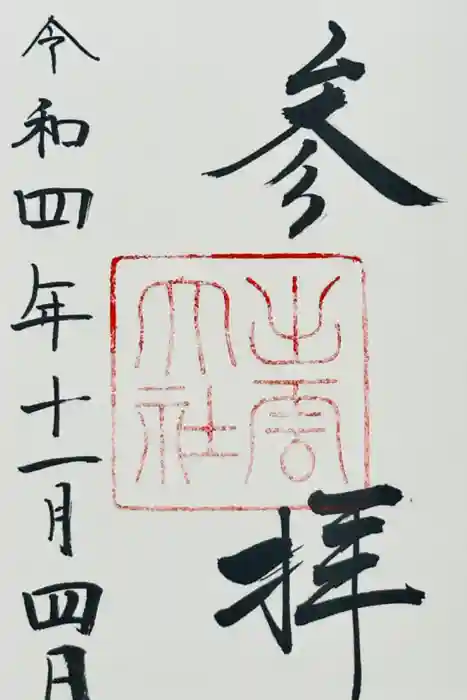 参拝
出雲
大社
令和四年十一月四日